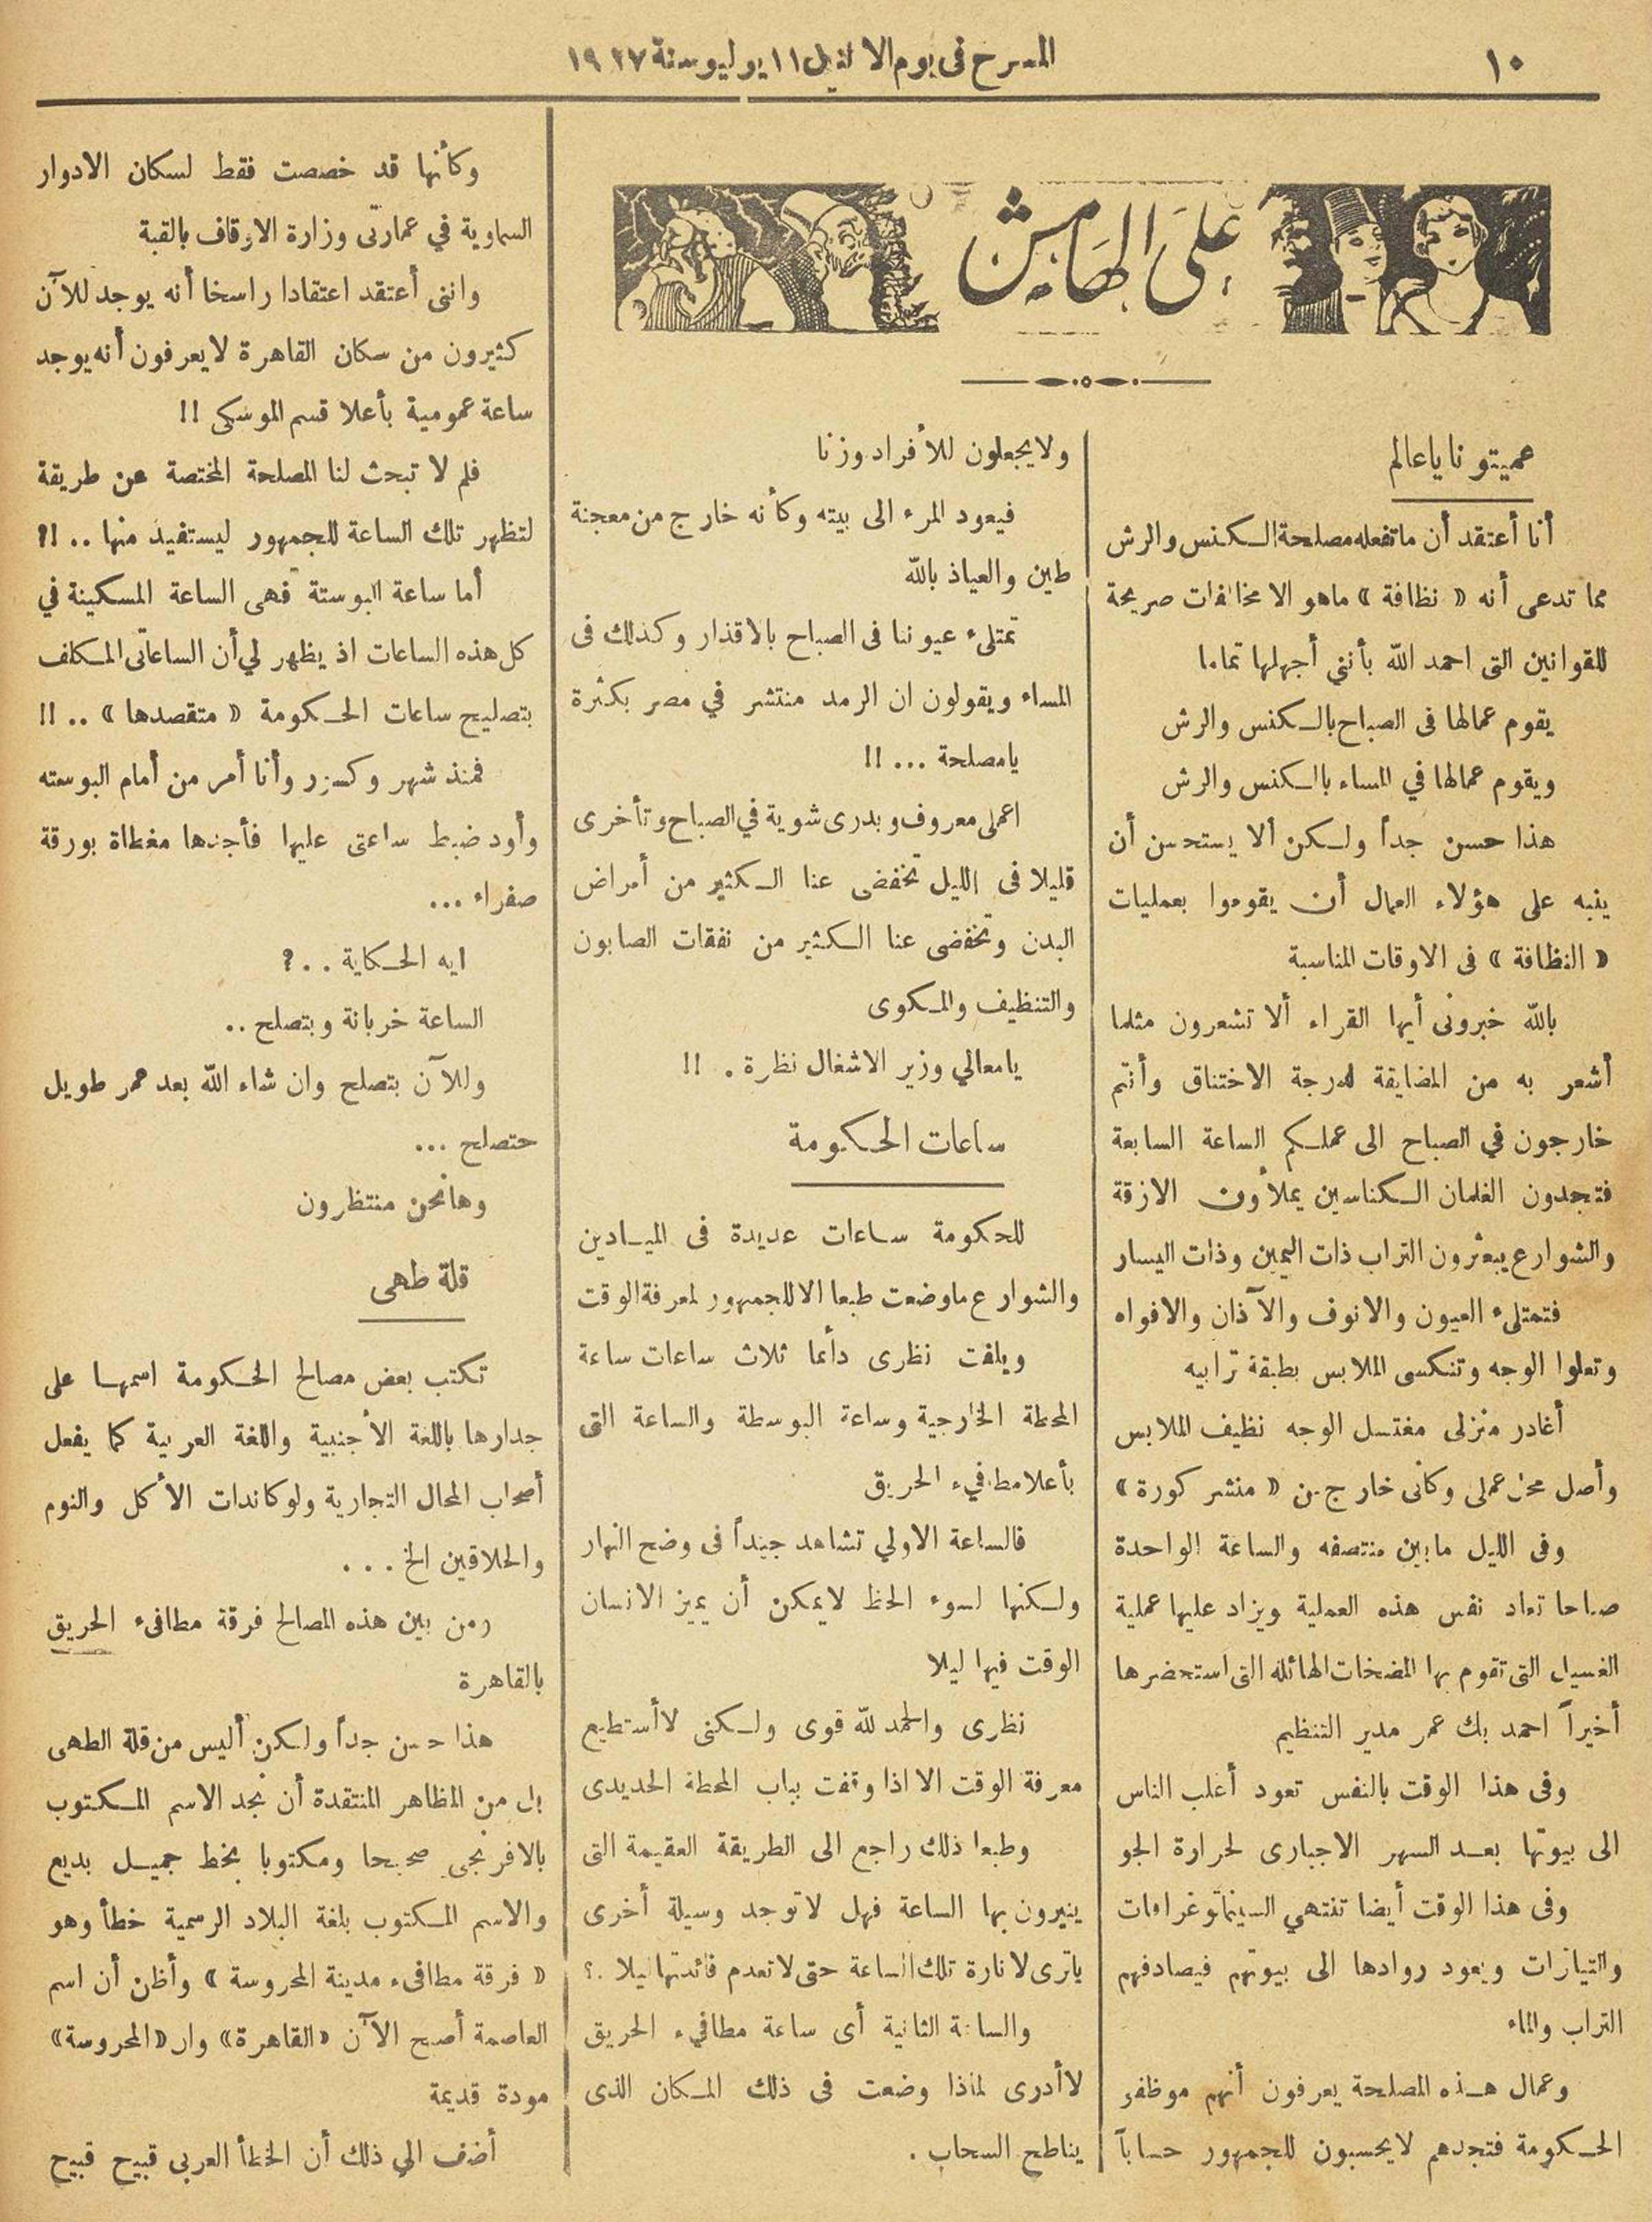 ١٠
المسرح فى يوم الاثنين ١١ يوليو سنة ١٩٢٧
على الهامش
عميتونا ياعالم
أنا أعتقد أن ماتفعله مصلحة الكنس والرش
مما تدعى أنه « نظافة » ماهو الا مخالفات صريحة
للقوانين التى احمد الله بأننى أجهلها تماما
يقوم عمالها فى الصباح بالكنس والرش
ويقوم عمالها في المساء بالكنس والرش
هذا حسن جداً ولكن ألا يستحسن أن
ينبه على هؤلاء العمال أن يقوموا بعمليات
« النظافة » فى الاوقات المناسبة
بالله خبرونى أيها القراء ألا تشعرون مثلما
أشعر به من المضايقة لدرجة الاختناق وأنتم
خارجون في الصباح الى عملكم الساعة السابعة
فتجدون الغلمان الكناسين يملأون الازقة
والشوارع يبعثرون التراب ذات اليمين وذات اليسار
فتمتلىء العيون والانوف والآذان والافواه
وتعلوا الوجه وتنكسى الملابس بطبقة ترابيه
أغادر منزلى مغتسل الوجه نظيف الملابس
وأصل محل عملى وكأنى خارج من « منشر كورة »
وفى الليل مابين منتصفه والساعة الواحدة
صباحا تعاد نفس هذه العملية ويزاد عليها عملية
الغسيل التى تقوم بها المضخات الهائله التى استحضرها
أخيراً احمد بك عمر مدير التنظيم
وفى هذا الوقت بالنفس تعود أغلب الناس
الى بيوتها بعد السهر الاجبارى لحرارة الجو
وفى هذا الوقت أيضا تنتهي السينماتوغرافات
والتياترات ويعود روادها الى بيوتهم فيصادفهم
التراب والماء
وعمال هذه المصلحة يعرفون أنهم موظفو
الحكومة فتجدهم لايحسبون للجمهور حساباً
ولايجعلون للأفراد وزنا
فيعود المرء الى بيته وكأنه خارج من معجنة
طين والعياذ بالله
تمتلىء عيوننا فى الصباح بالاقذار وكذلك فى
المساء ويقولون ان الرمد منتشر في مصر بكثرة
يامصلحة ... !!
اعملى معروف وبدرى شوية في الصباح وتأخرى
قليلا فى الليل تخفضى عنا الكثير من أمراض
البدن وتخفضى عنا الكثير من نفقات الصابون
والتنظيف والمكوى
يامعالي وزير الاشغال نظرة . !!
ساعات الحكومة
للحكومة ساعات عديدة فى الميادين
والشوارع ماوضعت طبعا الا للجمهور لمعرفة الوقت
ويلفت نظرى دأئما ثلاث ساعات ساعة
المحطة الخارجية وساعة البوسطة والساعة التى
بأعلا مطافىء الحريق
فالساعة الاولي تشاهد جيداً فى وضح النهار
ولكنها لسوء الحظ لايمكن أن يميز الانسان
الوقت فيها ليلا
نظرى والحمد لله قوى ولكنى لاأستطيع
معرفة الوقت الا اذا وقفت بباب المحطة الحديدى
وطبعا ذلك راجع الى الطريقة العقيمة التى
ينيرون بها الساعة فهل لاتوجد وسيلة أخرى
ياترى لانارة تلك الساعة حتى لاتعدم فائدتها ليلا .؟
والساعة الثانية أى ساعة مطافىء الحريق
لاأدرى لماذا وضعت فى ذلك المكان الذى
يناطح السحاب .
وكأنها قد خصصت فقط لسكان الادوار
السماوية في عمارتى وزارة الاوقاف بالقبة
واننى أعتقد اعتقادا راسخا أنه يوجد للآن
كثيرون من سكان القاهرة لايعرفون أنه يوجد
ساعة عمومية بأعلا قسم الموسكى !!
فلم لا تبحث لنا المصلحة المختصة عن طريقة
لتظهر تلك الساعة للجمهور ليستفيد منها .. !؟
أما ساعة البوستة فهى الساعة المسكينة في
كل هذه الساعات اذ يظهر لي أن الساعاتى المكلف
بتصليح ساعات الحكومة « متقصدها » .. !!
فمنذ شهر وكسور وأنا أمر من أمام البوسته
وأود ضبط ساعتى عليها فأجدها مغطاة بورقة
صفراء ...
ايه الحكاية ..؟
الساعة خربانة وبتصلح ..
وللآن بتصلح وان شاء الله بعد عمر طويل
حتصلح ...
وهانحن منتظرون
قلة طهى
تكتب بعض مصالح الحكومة اسمها على
جدارها باللغة الأجنبية واللغة العربية كما يفعل
أصحاب المحال التجارية ولوكاندات الأكل والنوم
والحلاقين الخ ...
ومن بين هذه المصالح فرقة مطافىء الحريق
بالقاهرة
هذا حسن جداً ولكن أليس من قلة الطهى
بل من المظاهر المنتقدة أن نجد الاسم المكتوب
بالافرنجى صحيحا ومكتوبا بخط جميل بديع
والاسم المكتوب بلغة البلاد الرسمية خطأ وهو
« فرقة مطافىء مدينة المحروسة » وأظن أن اسم
العاصمة أصبح الآن «القاهرة» وان «المحروسة»
مودة قديمة
أضف الي ذلك أن الخطأ العربى قبيح قبيح